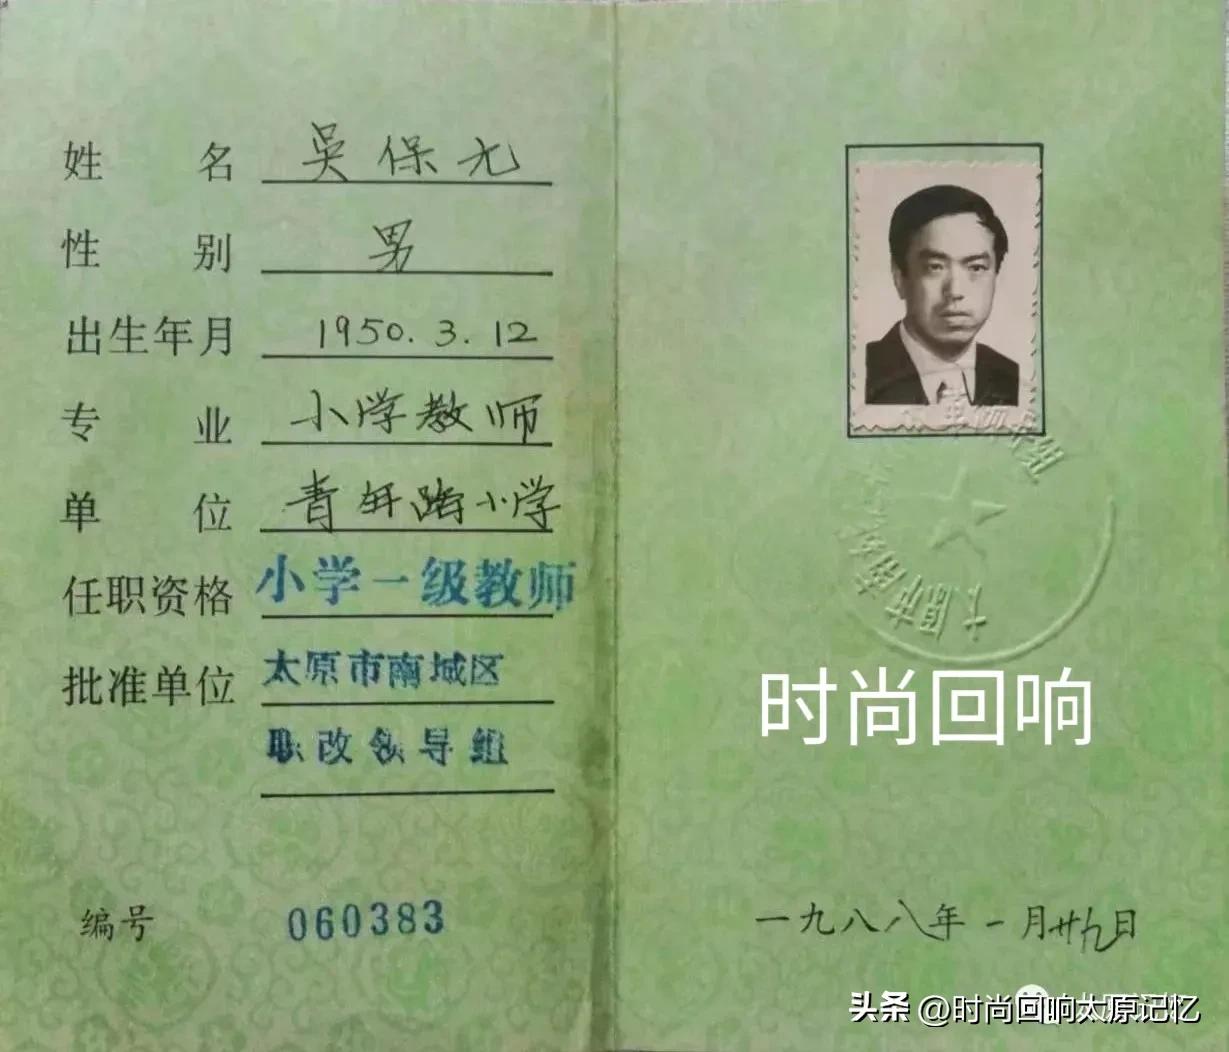 姓名 吴保元
性别 男
出生年月 1950.3.12
专业 小学教师
单位 青年路小学
任职资格 小学一级教师
批准单位 太原市南城区
职改领导组
编号 060383
时尚回响
一九八八年一月廿九日
头条 @时尚回响太原记忆